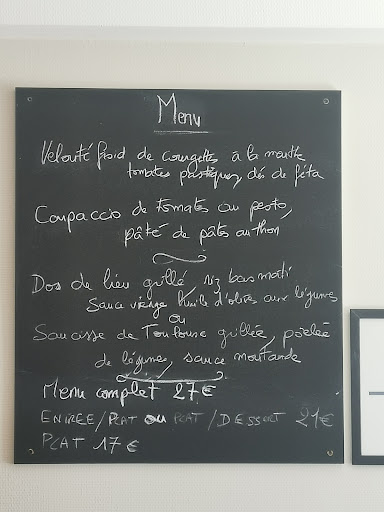 Menu
Velouté froid de courgettes à la menthe
tomates pastèques, dés de féta
Carpaccio de tomates au pesto,
pâté de pâtes au thon
Dos de lieu grillé, riz basmati
Sauce vierge huile d'olives aux légumes
ou
Saucisse de Toulouse grillée, poêlée
de légumes, sauce moutarde
Menu complet 27€
ENTREE/PLAT OU PLAT/DESSERT 21€
PLAT 17€